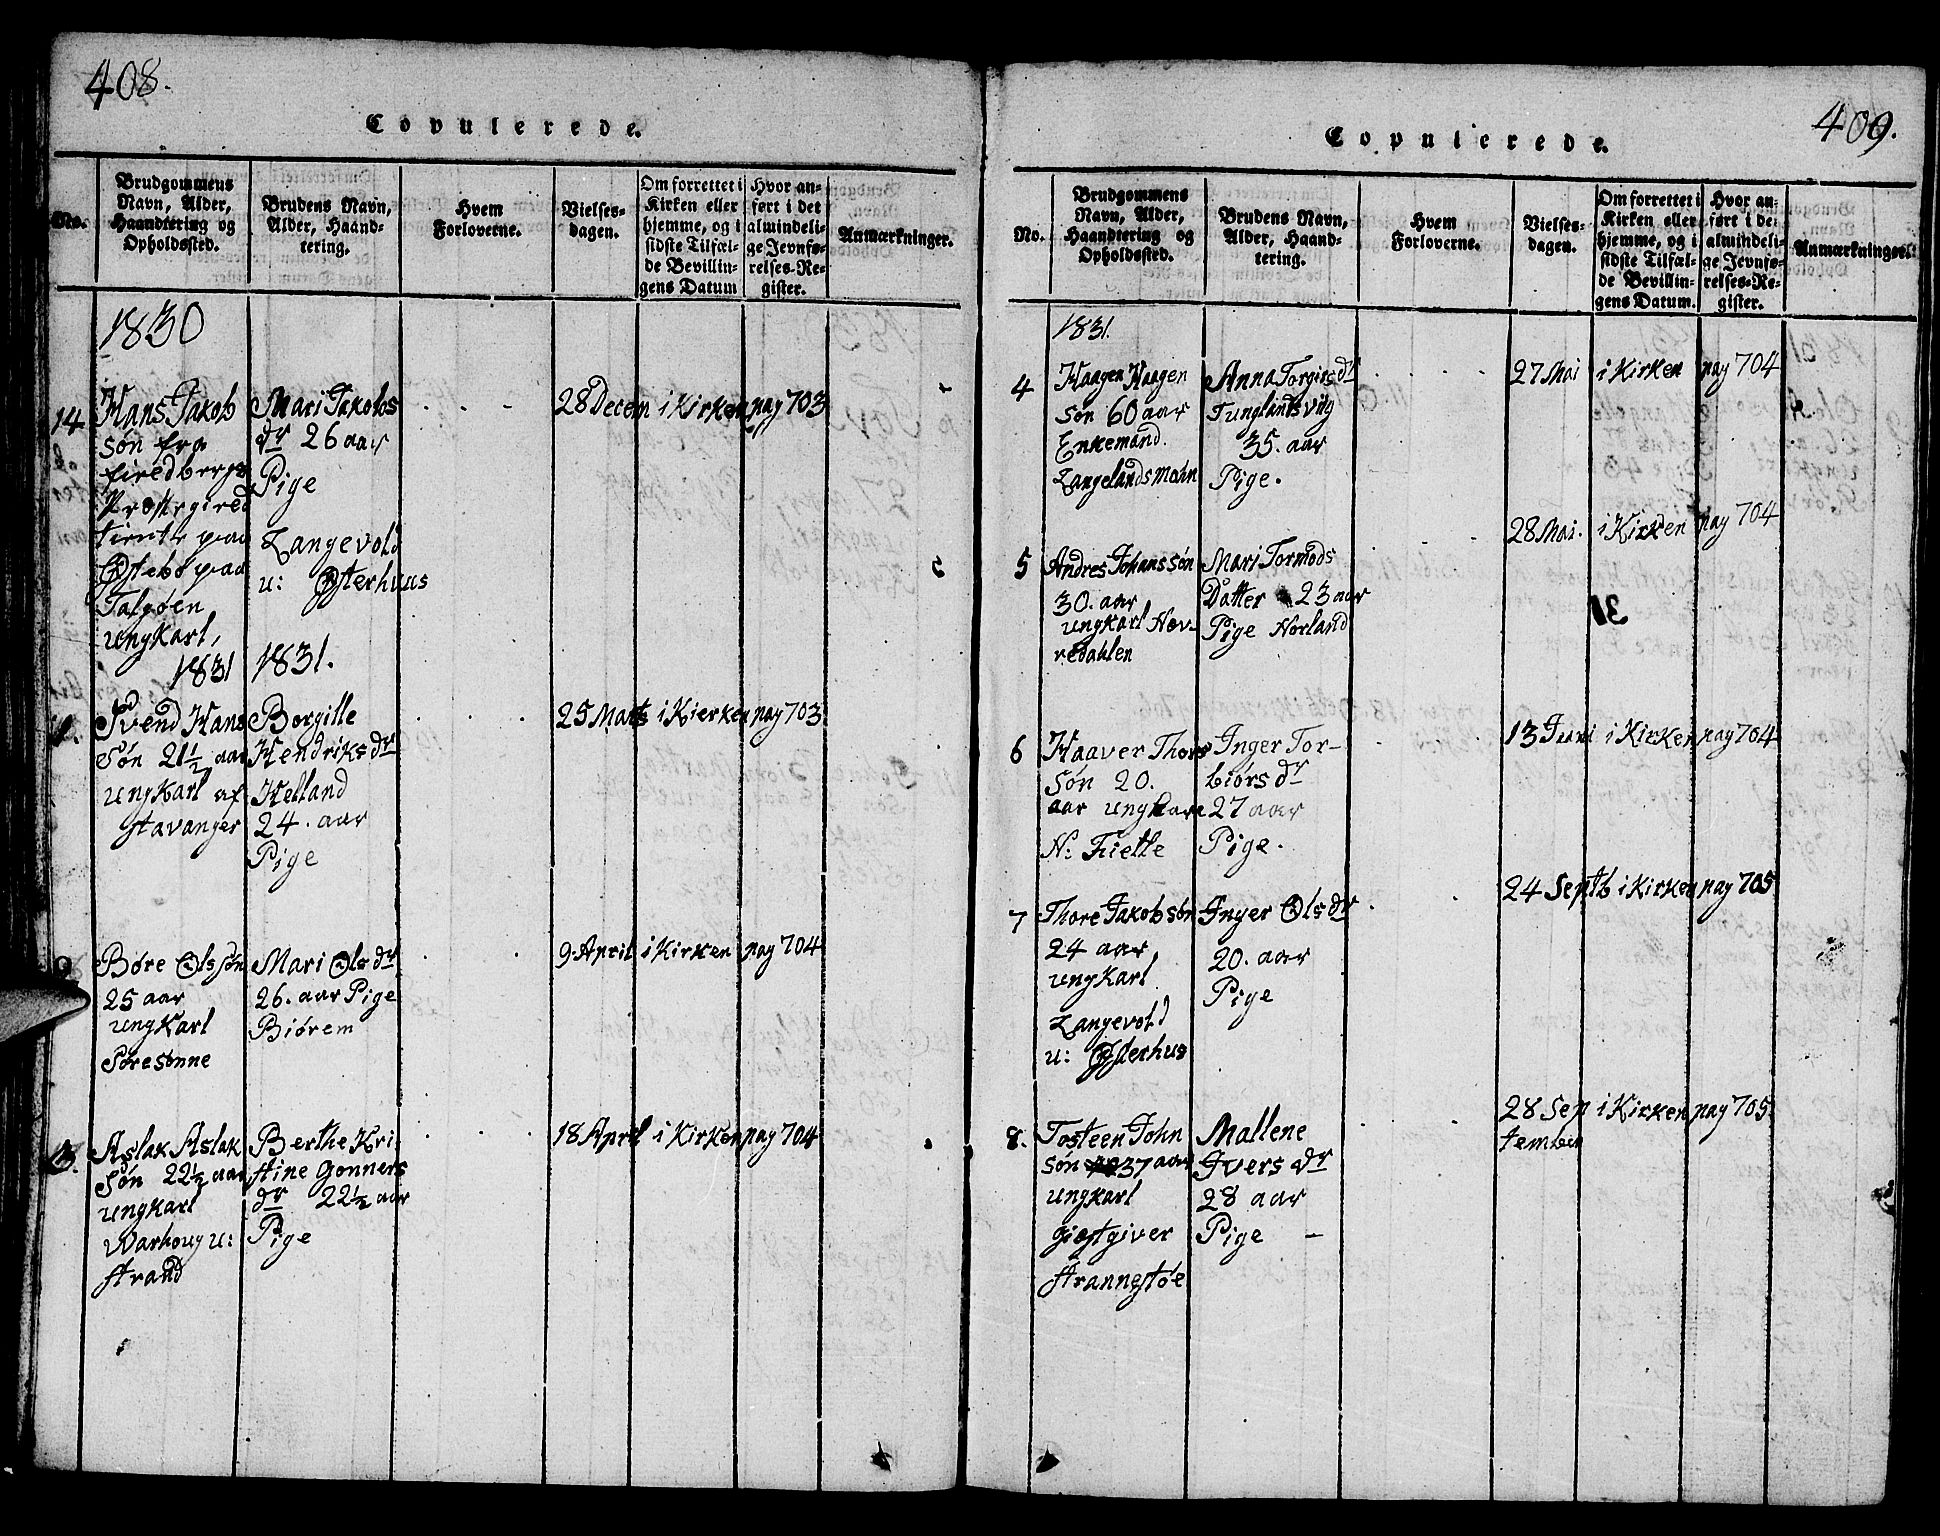 408.
Copulerede.
No.
Brudgommens
Navn, Alder,
Haandtering og
Opholdssted.
Brudens Navn,
Alder, Haand-
tering.
Hvem
Forloverne.
Vielses-
dagen.
Om forrettet i
Kirken eller
hjemme, og i
sidste Tilfæl-
de Bevillin-
gens Datum
Hvor an-
ført i det
almindeli-
ge Jevnfø-
relses-Re-
gister.
Anmærkninger.
1830
14
Hans Jakob
søn fra
Præstegired
tiente paa
Østebø paa
Talgøen
ungKarl,
Mari Jakobs
dr 26 aar
Pige
Langevold
u: Østerhuus
28 Decem i Kirken pag 703
1831 1831.
1.
Svend Hans
Søn 21½ aar
ungKarl af
Stavanger
Borgille
Hendriks dr
Helland
24. aar
Pige
25 Marts i Kierken pag 703
2
Børe Olssøn
25 aar
ungKarl
Søresønne
Mari Ols dr
26. aar Pige
Biørem
9 April i Kirken pag 704
3.
Aslak Aslak
Søn 22½ aar
ungKarl
Warhoug u:
Strand
Berthe Kri
stine Gonners
dr 22½ aar
Pige
18 April i Kirken pag 704
409.
Copulerede.
No.
Brudgommens
Navn, Alder,
Haandtering og
Opholdssted.
Brudens Navn,
Alder, Haand-
tering.
Hvem
Forloverne.
Vielses-
dagen.
Om forrettet i
Kirken eller
hjemme, og i
sidste Tilfæl-
de Bevillin-
gens Datum.
Hvor an-
ført i det
almindeli-
ge Jevnfø-
relses-Re-
gister.
Anmærkninger.
1831.
4
Haagen Haagen
søn 60 aar
Enkemand.
Langelandsmahn
Anna Torgirs dr
Tunglandsvig
35. aar
Pige.
27 Mai i Kirken pag 704
5
Andres Johanssøn
30. aar
ungkarl Hov-
redahlen
Mari Tormods
Datter 23 aar
Pige Norland
28 Mai. i Kirken pag 704
6
Haaver Thors
søn 20.
aar ungkarl
N: Tiette
Inger Tor-
biørs dr
27 aar
Pige.
13 Juni i Kirken pag 704
7
Thore Jakobsøn
24 aar
ungKarl
Langevold
u: Østerhus
Inger Ols dr
20. aar
Pige
24 Septb i Kirken pag 705
8.
Tosteen John
søn 37 aar
ungkarl
giæstgiver
Strannestøe
Mallene
Ivers dr
28 aar
Pige
28 Sep i Kirken pag 705.
tember